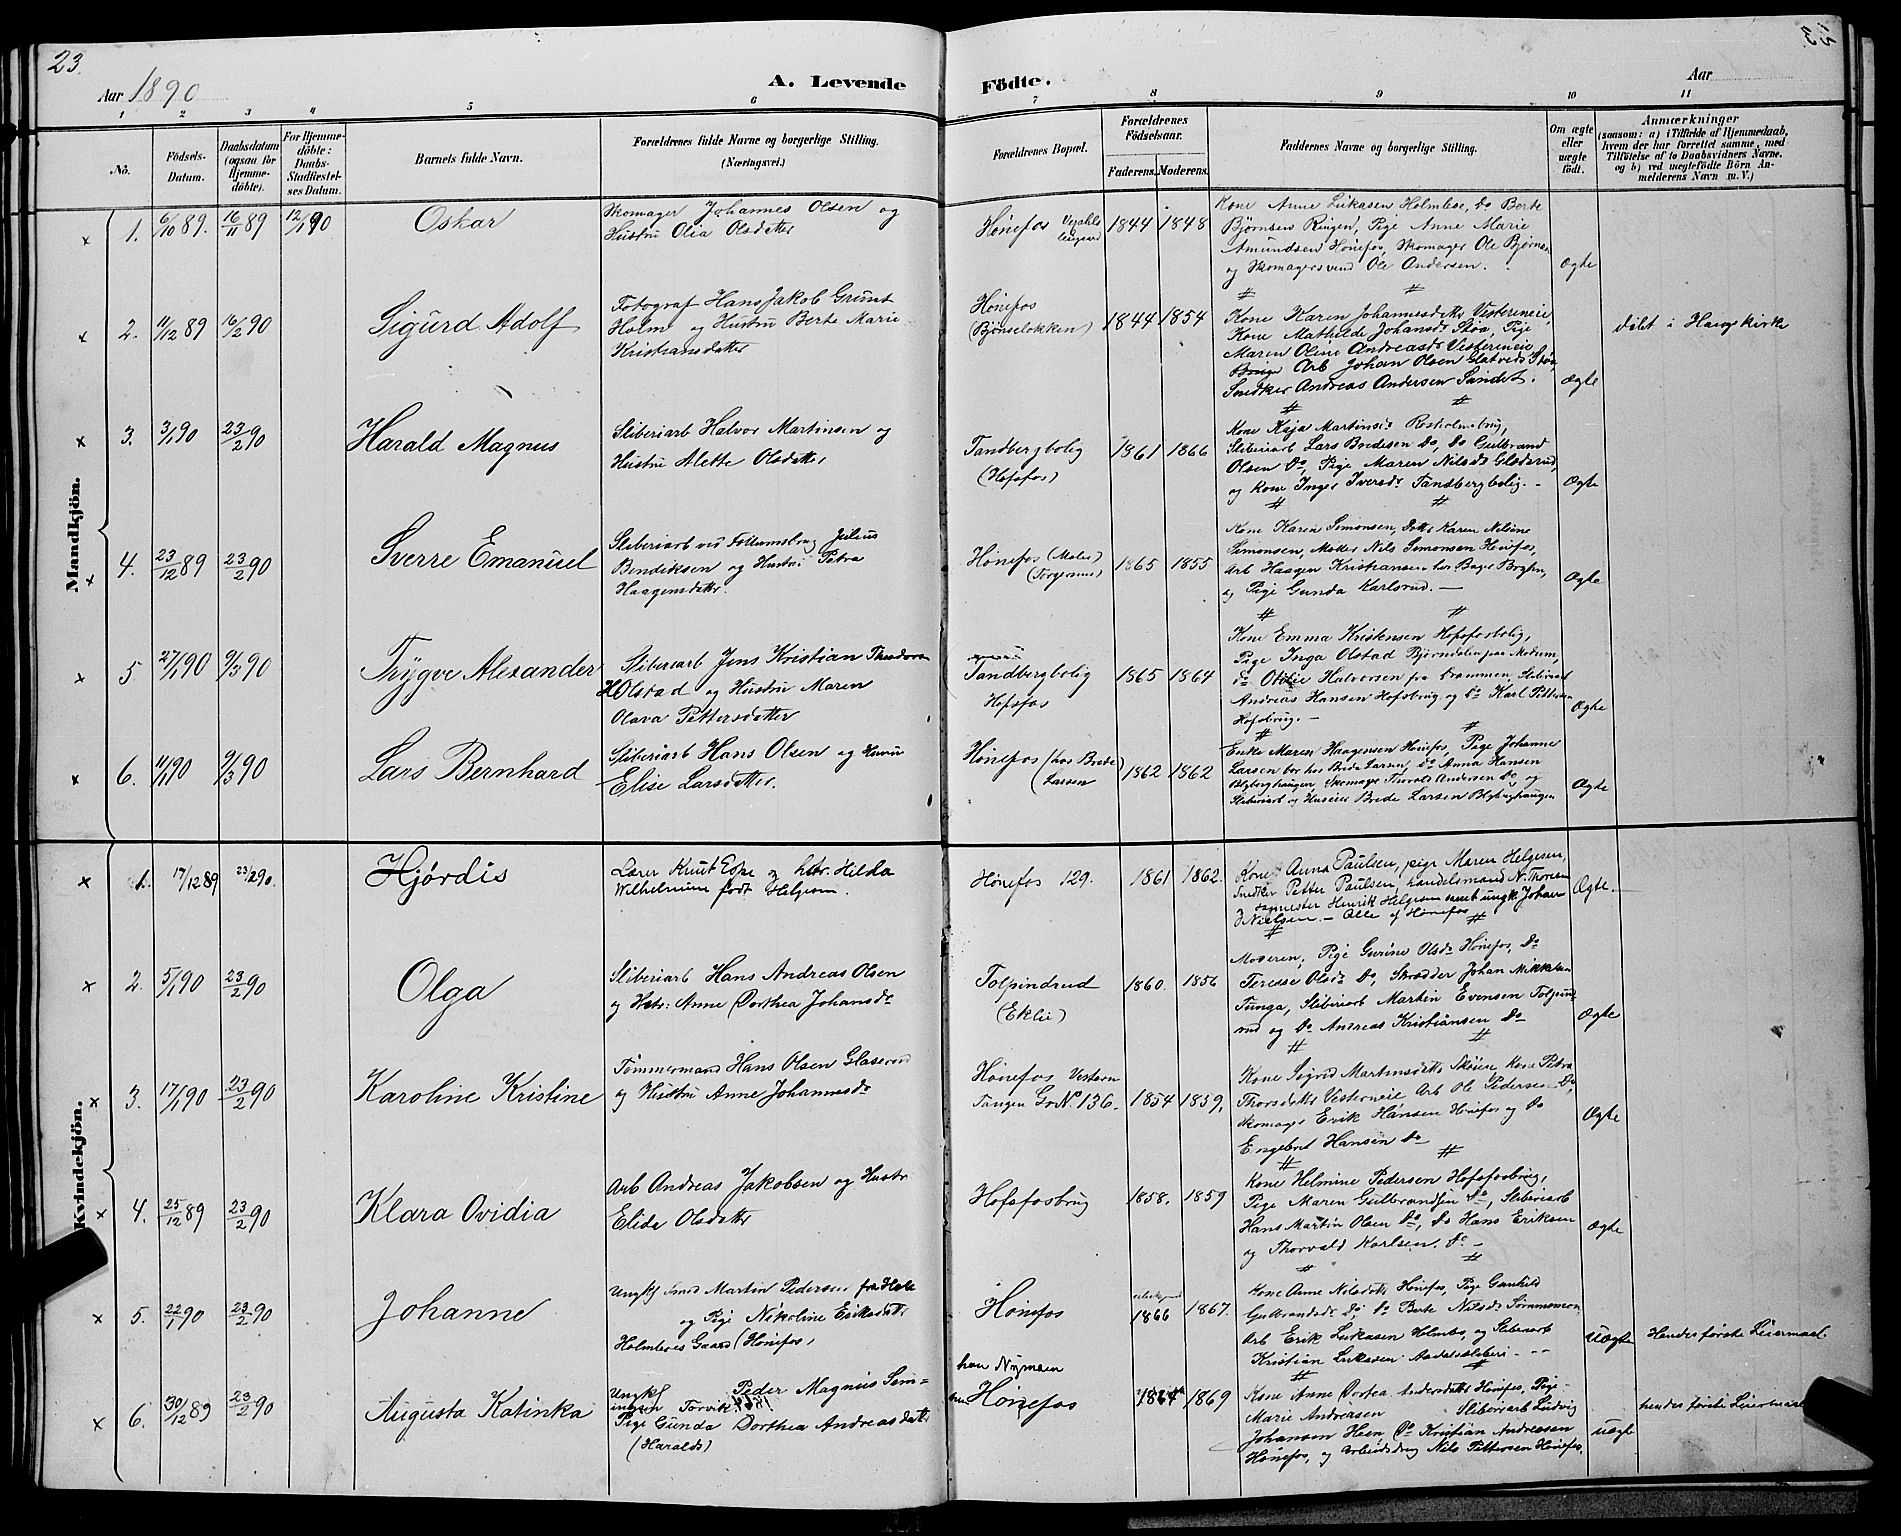 23.
Aar 1890
A. Levende Födte.
Aar
1 2 3 4 5 6 7 8 9 10 11
No.
Födsels-Datum.
Daabsdatum (ogsaa for Hjemme-döbte).
For Hjemme-döbte: Daabs-Stadfæstel-ses Datum.
Barnets fulde Navn.
Forældrenes fulde Navne og borgerlige Stilling. (Næringsvei.)
Forældrenes Bopæl.
Forældrenes Födselsaar.
Faderens. Moderens.
Faddernes Navne og borgerlige Stilling.
Om ægte eller uægte födt.
Anmærkninger
(saasom: a) i Tilfælde af Hjemmedaab, hvem der har forrettet samme, med Tilföielse af to Daabsvidners Navne, og b) ved uægtefödte Börn An-melderens Navn m. V.)
Mandkjön.
1. 6/10 89. 16/11 89 12/1 90
Oskar
Skomager Johannes Olsen og
Hustru Olia Olsdatter
Hønefos
1844 1848
Kone Anne Lukasen Holmboe, Do Berte
Bjørnsen Ringen, Pige Anne Marie
Amundsen Hønefos, Skomager Ole Bjørnsen
og Skomagersvend Ole Andersen.
Ægte
2. 11/12 89 16/2 90
Sigurd Adolf
Fotograf Hans Jakob Grunt
Holm og Hustru Berte Marie
Kristiansdatter
Hønefos
(Bjønseløkken)
1844 1854
Kone Karen Johannesdatter Vestereneie,
Kone Mathilde Johansdr Støa, Pige
Maren Oline Andreasdr Vestereneie
Arb Johan Olsen Glatveds Støa
Snedker Andreas Andersen Sandet.
Ægte
døbt i Haugs kirke
3. 3/1 90 23/2 90
Harald Magnus
Sliberiarb Halvor Martinsen og
Hustru Alette Olsdatter
Tandbergbolig
(Hofsfos)
1861 1866
Kone Kaja Martinsdr
Sliberiarb Lars Bredesen Do, Do Gulbrand
Olsen Do, Pige Maren Nilsdr Gladsrud,
og Kone Inger Iversdr Tandbergbolig.
Ægte
4. 23/12 89 23/2 90
Sverre Emanuel
Sliberiarb ved Follumsbrug Julius
Bendiksen og Hustru Petra
Haagensdatter.
Hønefos
1865 1855
Kone Karen Simonsen, Datter Karen Nilsine
Simonsen, Møller Nils Simonsen Hønefos,
Arb Haagen Kristiansen hos Bager
og Pige Gunda Karlsrud.
Ægte
5 27/1 90 9/3 90
Trygve Alexander
Sliberiarb Jens Kristian Theodor
Olstad og Hustru Maren
Olava Pettersdatter
Tandbergbolig
Hofsfos
1865 1864
Kone Emma Kristensen Hofsfosbolig,
Pige Inga Olstad Bjørndalen paa Modum,
Do Otilie Halvorsen fra Drammen, Sliberiarb
Andreas Hansen Hofsbrug og Do Karl Pettersen
Hofsbrug.
Ægte
6. 11/1 90 9/3 90
Lars Bernhard
Sliberiarb Hans Olsen og Hustru
Elise Larsdatter.
Hønefos (hos Brede
Larsen
1862 1862
Enke Maren Haagensen Hønefos, Pige Johanne
Larsen bor hos Brede Larsen, Do Anna Hansen
Blybergshaugen Skomager Thorvald Andersen Do og
Sliberiarb og Huseier Brede Larsen Blybergshaugen
Ægte
Kvindekjön.
1. 17/12 89 23/2 90.
Hjørdis
Lærer Knut Espe og hstr. Hilda
Wilhelmine født Helgesen.
Hønefos 129.
1861 1862.
Kone Anna Paulsen, pige Maren Helgesen,
Snedker Petter Paulsen, handelsmand N. Thoresen
sagmester Henrik Helgesen samt ungk. Johan
Nielsen. - Alle af Hønefos
Ægte.
2. 5/1 90 23/2 90
Olga
Sliberiarb Hans Andreas Olsen
og Hstr: Anne Dorthea Johansdr
Tolpindrud
(Eklie)
1860. 1856
Moderen, Pige Gurine Olsdr Hønefos, Do
Terese Olsdr Do, Skrædder Johan Mikkelsen
Tunga, Sliberiarb Martin Evensen Tolpind-
rud og Do Andreas Kristiansen Do
Ægte
3. 17/1 90 23/2 90
Karoline Kristine
Tømmermand Hans Olsen Glaserud
og Hustru Anne Johannesdr
Hønefos Vestern
Tangen Gr.N. 136.
1854 1859.
Kone Sigrid Martinsdatter Skøien, Kone Petra
Thorsdatter Vesterneie Arb Ole Pedersen Do,
Skomager Erik Hansen Hønefos og Do
Engebret Hansen Do
Ægte
4. 25/12 89 23/2 90
Klara Ovidia
Arb Andreas Jakobsen og Hustr
Elise Olsdatter
Hofsfosbrug
1858. 1859
Kone Helmine Pedersen Hofsfosbrug,
Pige Maren Gulbrandsen Do, Sliberiarb
Hans Martin Olsen Do, Do Hans Eriksen
og Thorvald Karlsen. Do
Ægte
5. 22/1 90 23/2 90
Johanne
Ungkf Smed Martin Pedersen fra Hole
og Pige Nikoline Eriksdatter
Holmboes Gaard (Hønefos)
Hønefos
1866 1867.
Kone Anne Nilsdatter Hønefos, Pige Gunhild
Gulbrandsdr Do Do Berte Nilsdr
Arb Erik Lukasen Holmbo, og Sliberiarb
Kristian Lukasen Aadalssliberi
Uægte
Hendes første Leiermaal.
6. 30/12 89 23/2 90
Augusta Katinka
Ungkf Peder Magnus Sem-
Torvik
Pige Gunda Dorthea Andreasdatter
(Haralds)
han Nymoen
Hønefos
1864 1869
Kone Anne Dortea Andersdatter Hønefos, Pige
Marie Andreasen Sliberiarb Ludvig
Johansen Heen Do Kristian Andreasen
Hønefos, og Arbeidsdreng Nils Pettersen Hønefos.
uægte
hendes første Leiermaal